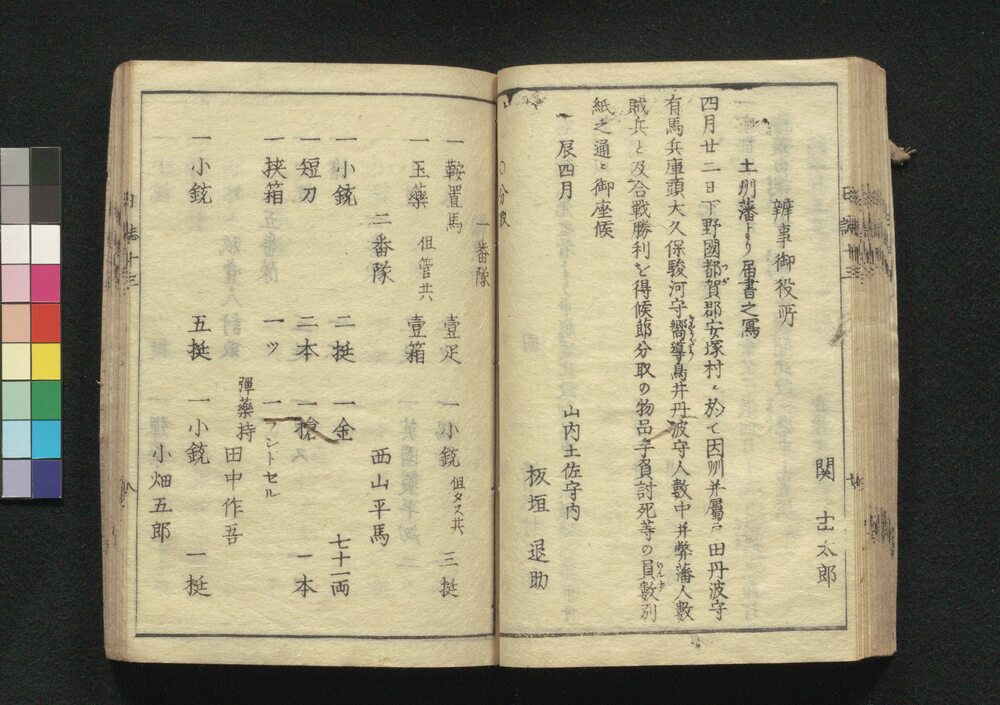 関士太郎
辨事御役所
土州藩ヨリ届書之寫
四月廿二日下野國都賀郡安塚村ニ於て因州并属戸田丹波守
有馬兵庫頭大久保駿河守嚮導鳥井丹波守人數中并弊藩人數
賊兵と及合戦勝利を得候節分取の物品手負討死等の員數別
紙之通ニ御座候
辰四月
山内土佐守内
板垣退助
〇分取
一番隊
一鞍置馬 壹疋 一小銃 但タス共 三挺
一玉藥 但管共 壹箱
二番隊 西山平馬
一小銃 二挺 一金 七十一両
一短刀 二本 一槍 一本
一挟箱 一ツ 一ラントセル
彈藥持 田中作吾
一小銃 五挺 一小銃 一挺
小畑五郎
日誌十三
八